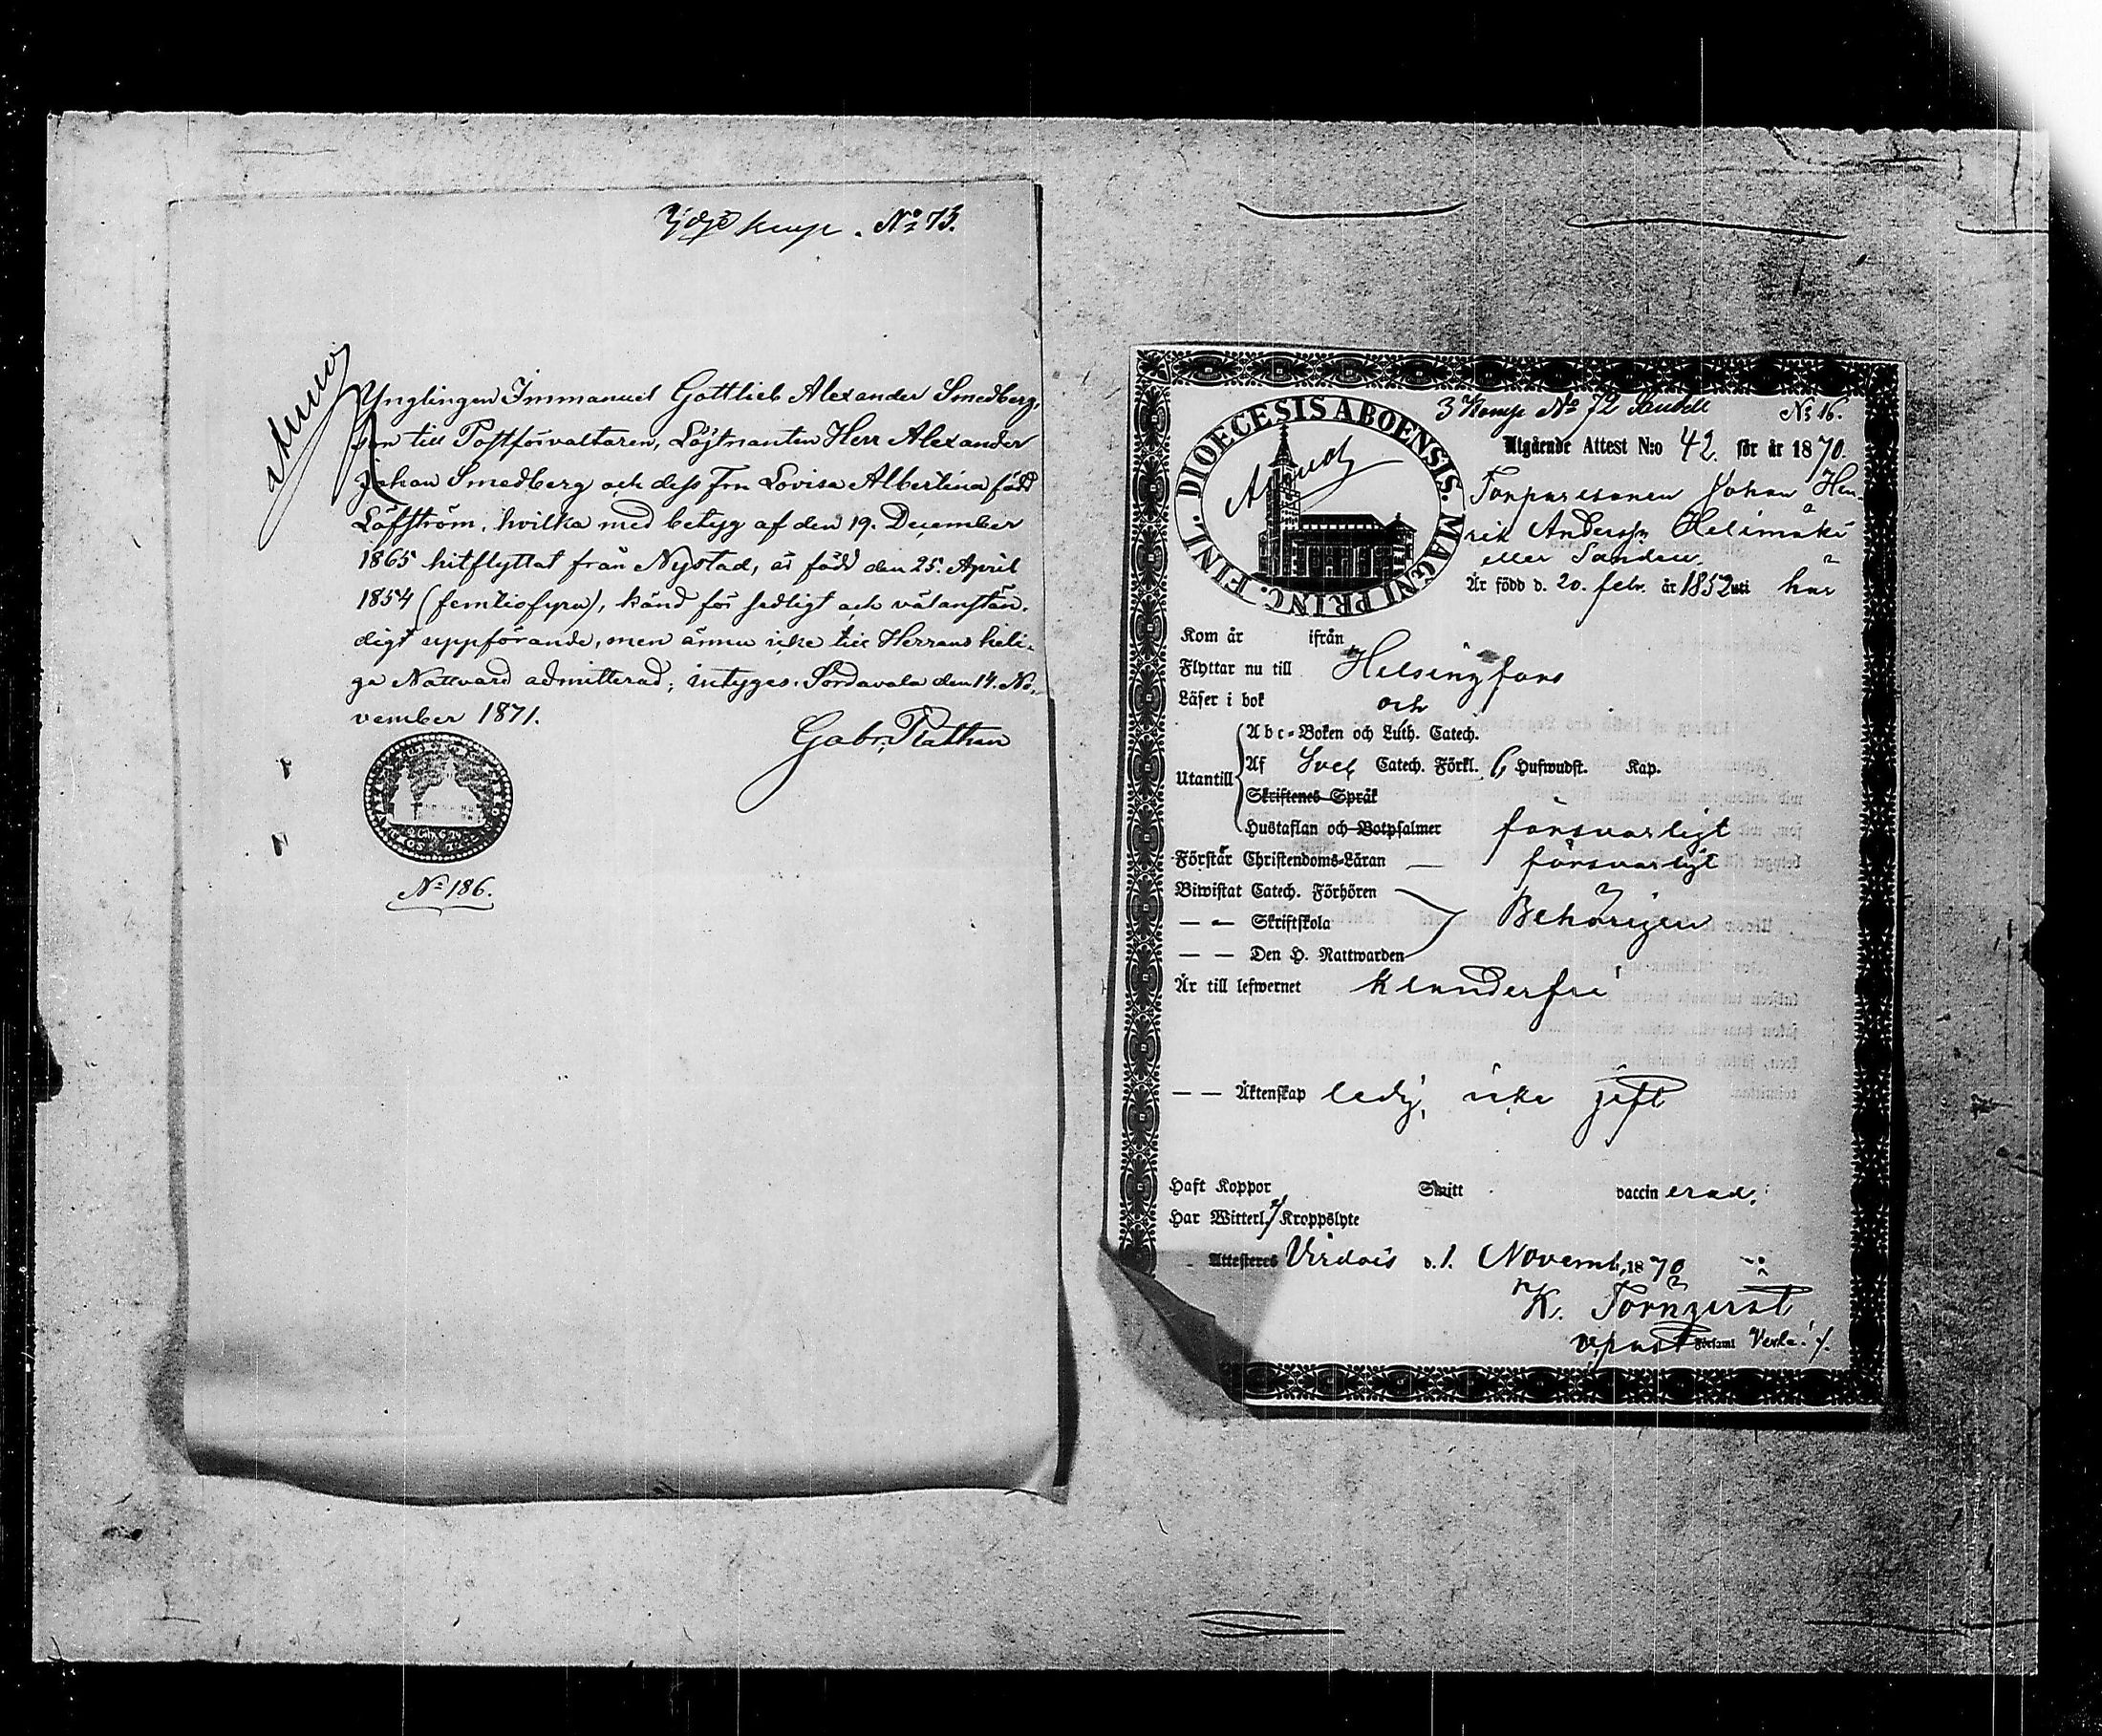 3dje Komp. No 73.
Ynglingen Immanuel Gottlieb Alexander Smedberg,
son till Postförvaltaren, Löjtnanten Herr Alexander
Johan Smedberg och dess Fru Lovisa Albertina född
Löfström, hvilka med betyg af den 19. December
1865 hitflyttat från Nystad, är född den 25. April
1854 (femtiofyra), känd för sedligt och välanstän-
digt uppförande, men ännu icke till Herrans heli-
ga Nattvard admitterad; intyges. Sordavala den 14. No-
vember 1871.
Gabr. Plathan
No 186.
3 Komp No 72
No 16.
DIOECESIS ABOENSIS. MAGNI PRINC. FINL.
Utgående Attest N:o 42. för år 1870.
Torparesonen Johan Hen-
rik Andersson Helimäki
eller Sandell.
Är född d. 20. febr. år 1852 uti här
Kom år ifrån
Flyttar nu till Helsingfors
Läser i bok och
Utantill
Abc-Boken och Luth. Catech.
Af Sveb. Catech. Förkl. 6 Hufwudst. Kap.
Skriftenes Språk
Hustaflan och Botpsalmer försvarligt
Förstår Christendoms-Läran — försvarligt
Biwistat Catech. Förhören
— — Skriftskola Behörigen
— — Den H. Nattwarden
Är till lefwernet klanderfri
— — Äktenskap ledig, icke gift
Haft Koppor Smitt vaccinerad.
Har Witterl. Kroppslyte
Attesteras Virdois d. 1. Novemb. 1870
K. Törnqvist
v. past. Förlaml